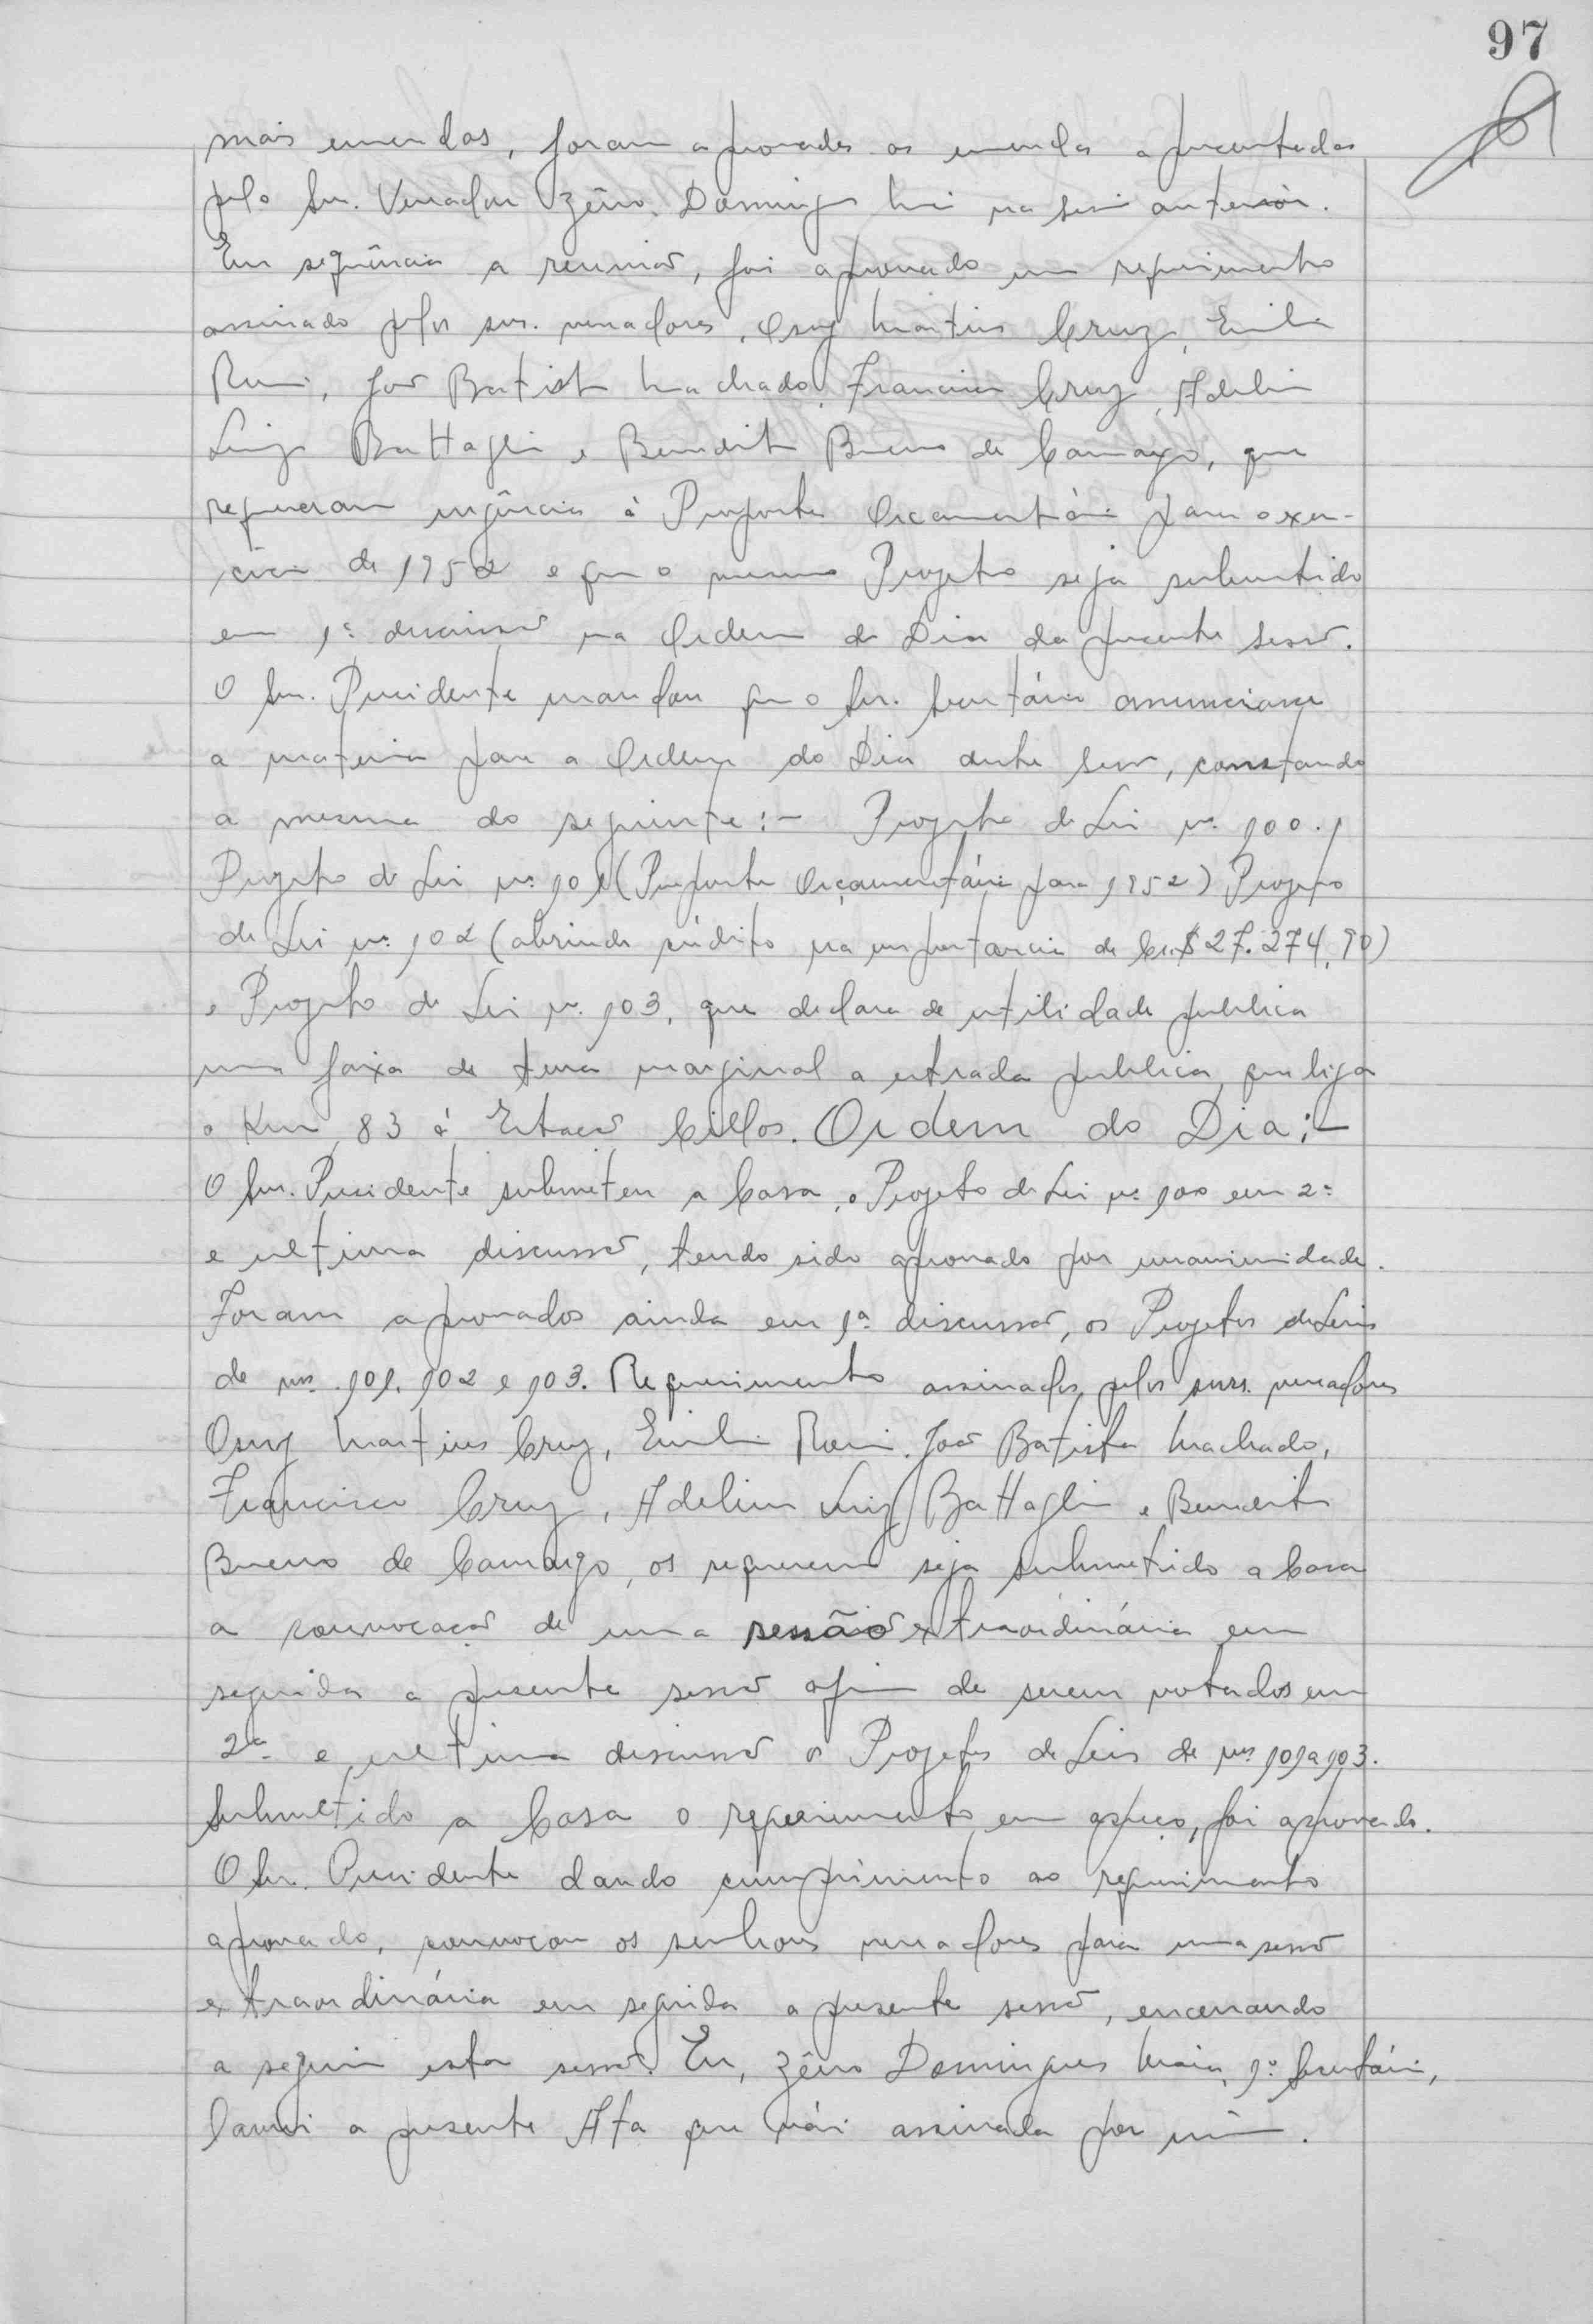 97
mais emendas, foram aprovadas as emendas apresentadas
pelo Snr. Vereador Zêno Domingues Maia na sessão anterior.
Em sequência a reunião, foi aprovado um requerimento
assinado pelos srs. vereadores, Osny Martins Cruz, Emilio
Romi, João Batista Machado, Francisco Cruz, Adelino
Luiz Battaglia e Benedito Bueno de Camargo, que
requereram urgência à Proposta Orçamentária para o exer-
cicio de 1952 e que o mesmo Projeto seja submetido
em 1ª discussão na Ordem do Dia da presente sessão.
O Snr. Presidente mandou que o Snr. Secretário anunciasse
a materia para a Ordem do Dia desta sessão, constando
a mesma do seguinte:- Projeto de Lei nº 100.,
Projeto de Lei nº 101 (Proposta Orçamentária para 1952) Projeto
de Lei nº 102 (abrindo crédito na importancia de Cr.$ 27.274,90)
e Projeto de Lei nº 103, que declara de utilidade publica
uma faixa de terra marginal a estrada publica, que liga
o Km 83 à Estação Cillos. Ordem do Dia:-
O Snr. Presidente submeteu a Casa, o Projeto de Lei nº 100 em 2ª
e ultima discussão, tendo sido aprovado por unanimidade.
Foram aprovados ainda em 1ª discussão, os Projetos de Leis
de nºs 101, 102 e 103. Requerimento assinados pelos snrs. vereadores
Osny Martins Cruz, Emilio Romi, João Batista Machado,
Francisco Cruz, Adelino Luiz Battaglia e Benedito
Bueno de Camargo, os requerem seja submetido a Casa
a convocação de uma sessão extraordinária em
seguida a presente sessão afim de serem votados em
2ª e ultima discussão os Projetos de Leis de nºs 101 a 103.
Submetido a Casa o requerimento em apreço, foi aprovado.
O Snr. Presidente dando cumprimento ao requerimento
aprovado, convocou os senhores vereadores para uma sessão
extraordinária em seguida a presente sessão, encerrando
a seguir esta sessão. Eu, Zêno Domingues Maia, 1º Secretário,
lavrei a presente Ata que vái assinada por mim.